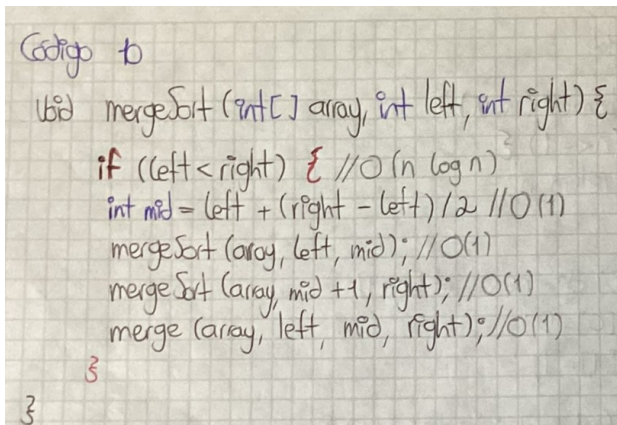 Código b
void mergeSort (int[] array, int left, int right) {
if (left < right) { //O(n log n)
int mid = left + (right - left) / 2 //O(1)
mergeSort (array, left, mid); //O(1)
mergeSort (array, mid +1, right); //O(1)
merge (array, left, mid, right); //O(1)
}
}